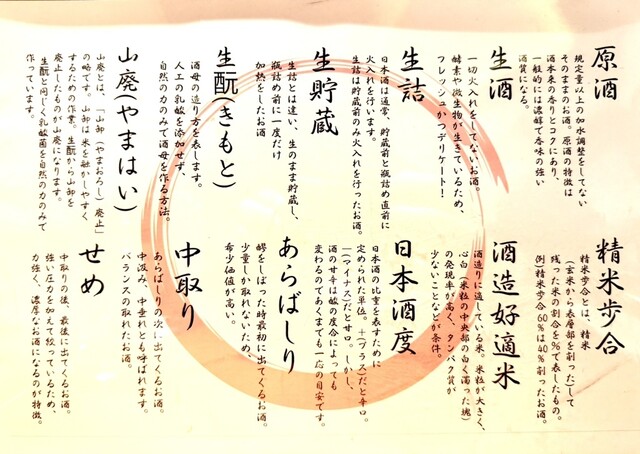 原酒
規定量以上の加水調整をしてない
そのままのお酒。原酒の特徴は
酒本来の香りとコクにあり、
一般的には濃醇で香味の強い
酒質になる。
生酒
一切火入れをしてないお酒。
酵素や微生物が生きているため、
フレッシュかつデリケート!
生詰
日本酒は通常、貯蔵前と瓶詰め直前に
火入れを行います。
生詰は貯蔵前のみ火入れを行ったお酒。
生貯蔵
生詰とは違い、生のまま貯蔵し、
瓶詰め前に一度だけ
加熱をしたお酒
生酛(きもと)
酒母の造り方を表します。
人工の乳酸を添加せず、
自然の力のみで酒母を作る方法。
山廃(やまはい)
山廃とは、「山卸(やまおろし)廃止」
の略です。山卸は米を融かしやすく
するための作業。生酛から山卸を
廃止したものが山廃になります。
生酛と同じく乳酸菌を自然の力のみで
作っています。
精米歩合
精米歩合とは、精米
(玄米から表層部を削った)して
残った米の割合を%で表したもの。
例)精米歩合60%は40%割ったお酒。
酒造好適米
酒造りに適している米。米粒が大きく、
心白(米粒の中央部の白く濁った塊)
の発現率が高く、タンパク質が
少ないことなどが条件。
日本酒度
日本酒の比重を表すために
定められた単位。+(プラス)だと辛口。
ー(マイナス)だと甘口。しかし、
酒の甘辛は酸の度合によっても
変わるのであくまでも一応の目安です。
あらばしり
醪をしぼった時最初に出てくるお酒。
少量しか取れないため、
希少価値が高い。
中取り
あらばしりの次に出てくるお酒。
中汲み、中垂れとも呼ばれます。
バランスの取れたお酒。
せめ
中取りの後、最後に出てくるお酒。
強い圧力を加えて絞っているため、
力強く、濃厚なお酒になるのが特徴。